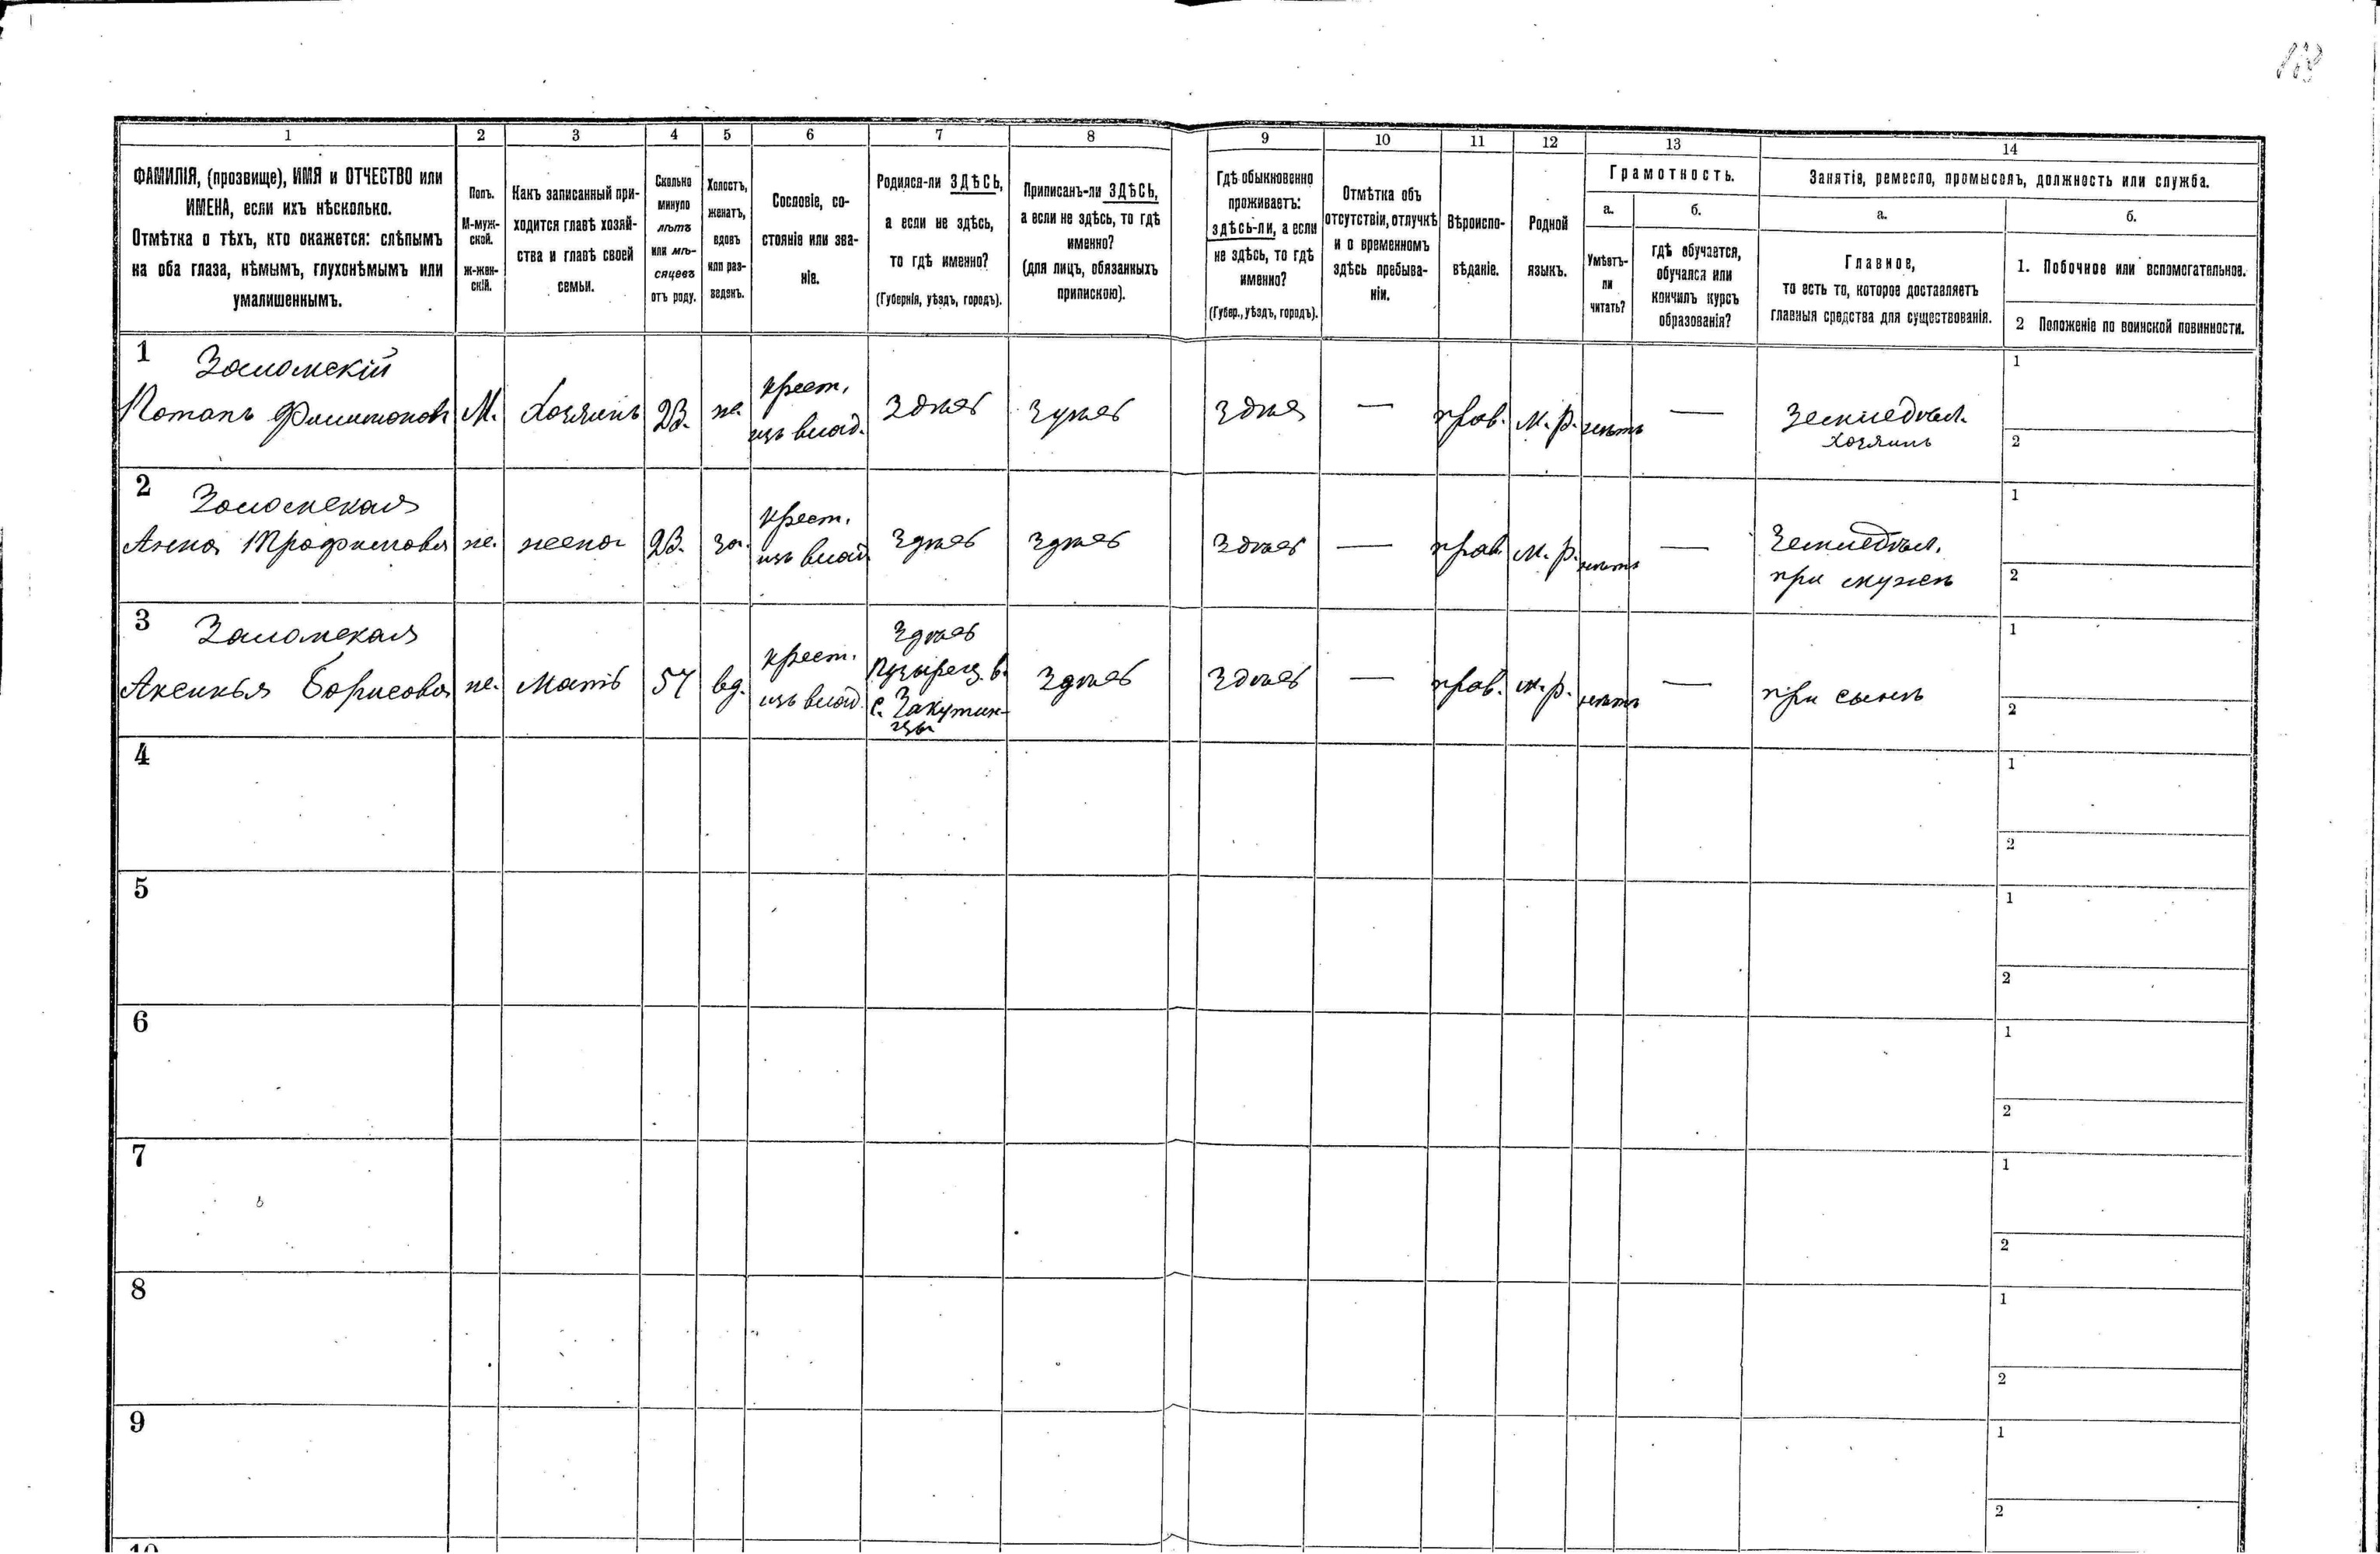 1 2 3 4 5 6 7 8 9 10 11 12 13 14
ФАМИЛІЯ, (прозвище), ИМЯ и ОТЧЕСТВО или
ИМЕНА, если ихъ нѣсколько.
Отмѣтка о тѣхъ, кто окажется: слѣпымъ
на оба глаза, нѣмымъ, глухонѣмымъ или
умалишеннымъ.
Полъ.
М-муж-
ской.
ж-жен-
скій.
Какъ записанный при-
ходится главѣ хозяй-
ства и главѣ своей
семьи.
Сколько
минуло
лѣтъ
или мѣ-
сяцевъ
отъ роду.
Холостъ,
женатъ,
вдовъ
или раз-
веденъ.
Сословіе, со-
стояніе или зва-
ніе.
Родился-ли ЗДѢСЬ,
а если не здѣсь,
то гдѣ именно?
(Губернія, уѣздъ, городъ).
Приписанъ-ли ЗДѢСЬ,
а если не здѣсь, то гдѣ
именно?
(для лицъ, обязанныхъ
припискою).
Гдѣ обыкновенно
проживаетъ:
здѣсь-ли, а если
не здѣсь, то гдѣ
именно?
(Губер., уѣздъ, городъ).
Отмѣтка объ
отсутствіи, отлучкѣ
и о временномъ
здѣсь пребыва-
ніи.
Вѣроиспо-
вѣданіе.
Родной
языкъ.
Грамотность.
а.
Умѣетъ-
ли
читать?
б.
гдѣ обучается,
обучался или
кончилъ курсъ
образованія?
Занятіе, ремесло, промыселъ, должность или служба.
а.
Главное,
то есть то, которое доставляетъ
главныя средства для существованія.
б.
1. Побочное или вспомогательное.
2 Положеніе по воинской повинности.
1 Заломскій
Потапъ Филимоновъ М. Хозяинъ 23. же. крест.
изъ влад. здѣсь здѣсь здѣсь — прав. м. р. нѣтъ — Земледѣл.
хозяинъ
1
2
2 Заломская
Анна Трофимова же. жена 23. за. крест.
изъ влад здѣсь здѣсь здѣсь — прав м. р. нѣтъ — Земледѣл.
при мужѣ
1
2
3 Заломская
Аксинья Борисова же. мать 57 вд. крест.
изъ влад. здѣсь
Пузырец. в.
с. Закутин-
цы
здѣсь здѣсь — прав. м. р. нѣтъ — при сынѣ
1
2
4
1
2
5
1
2
6
1
2
7
1
2
8
1
2
9
1
2
10